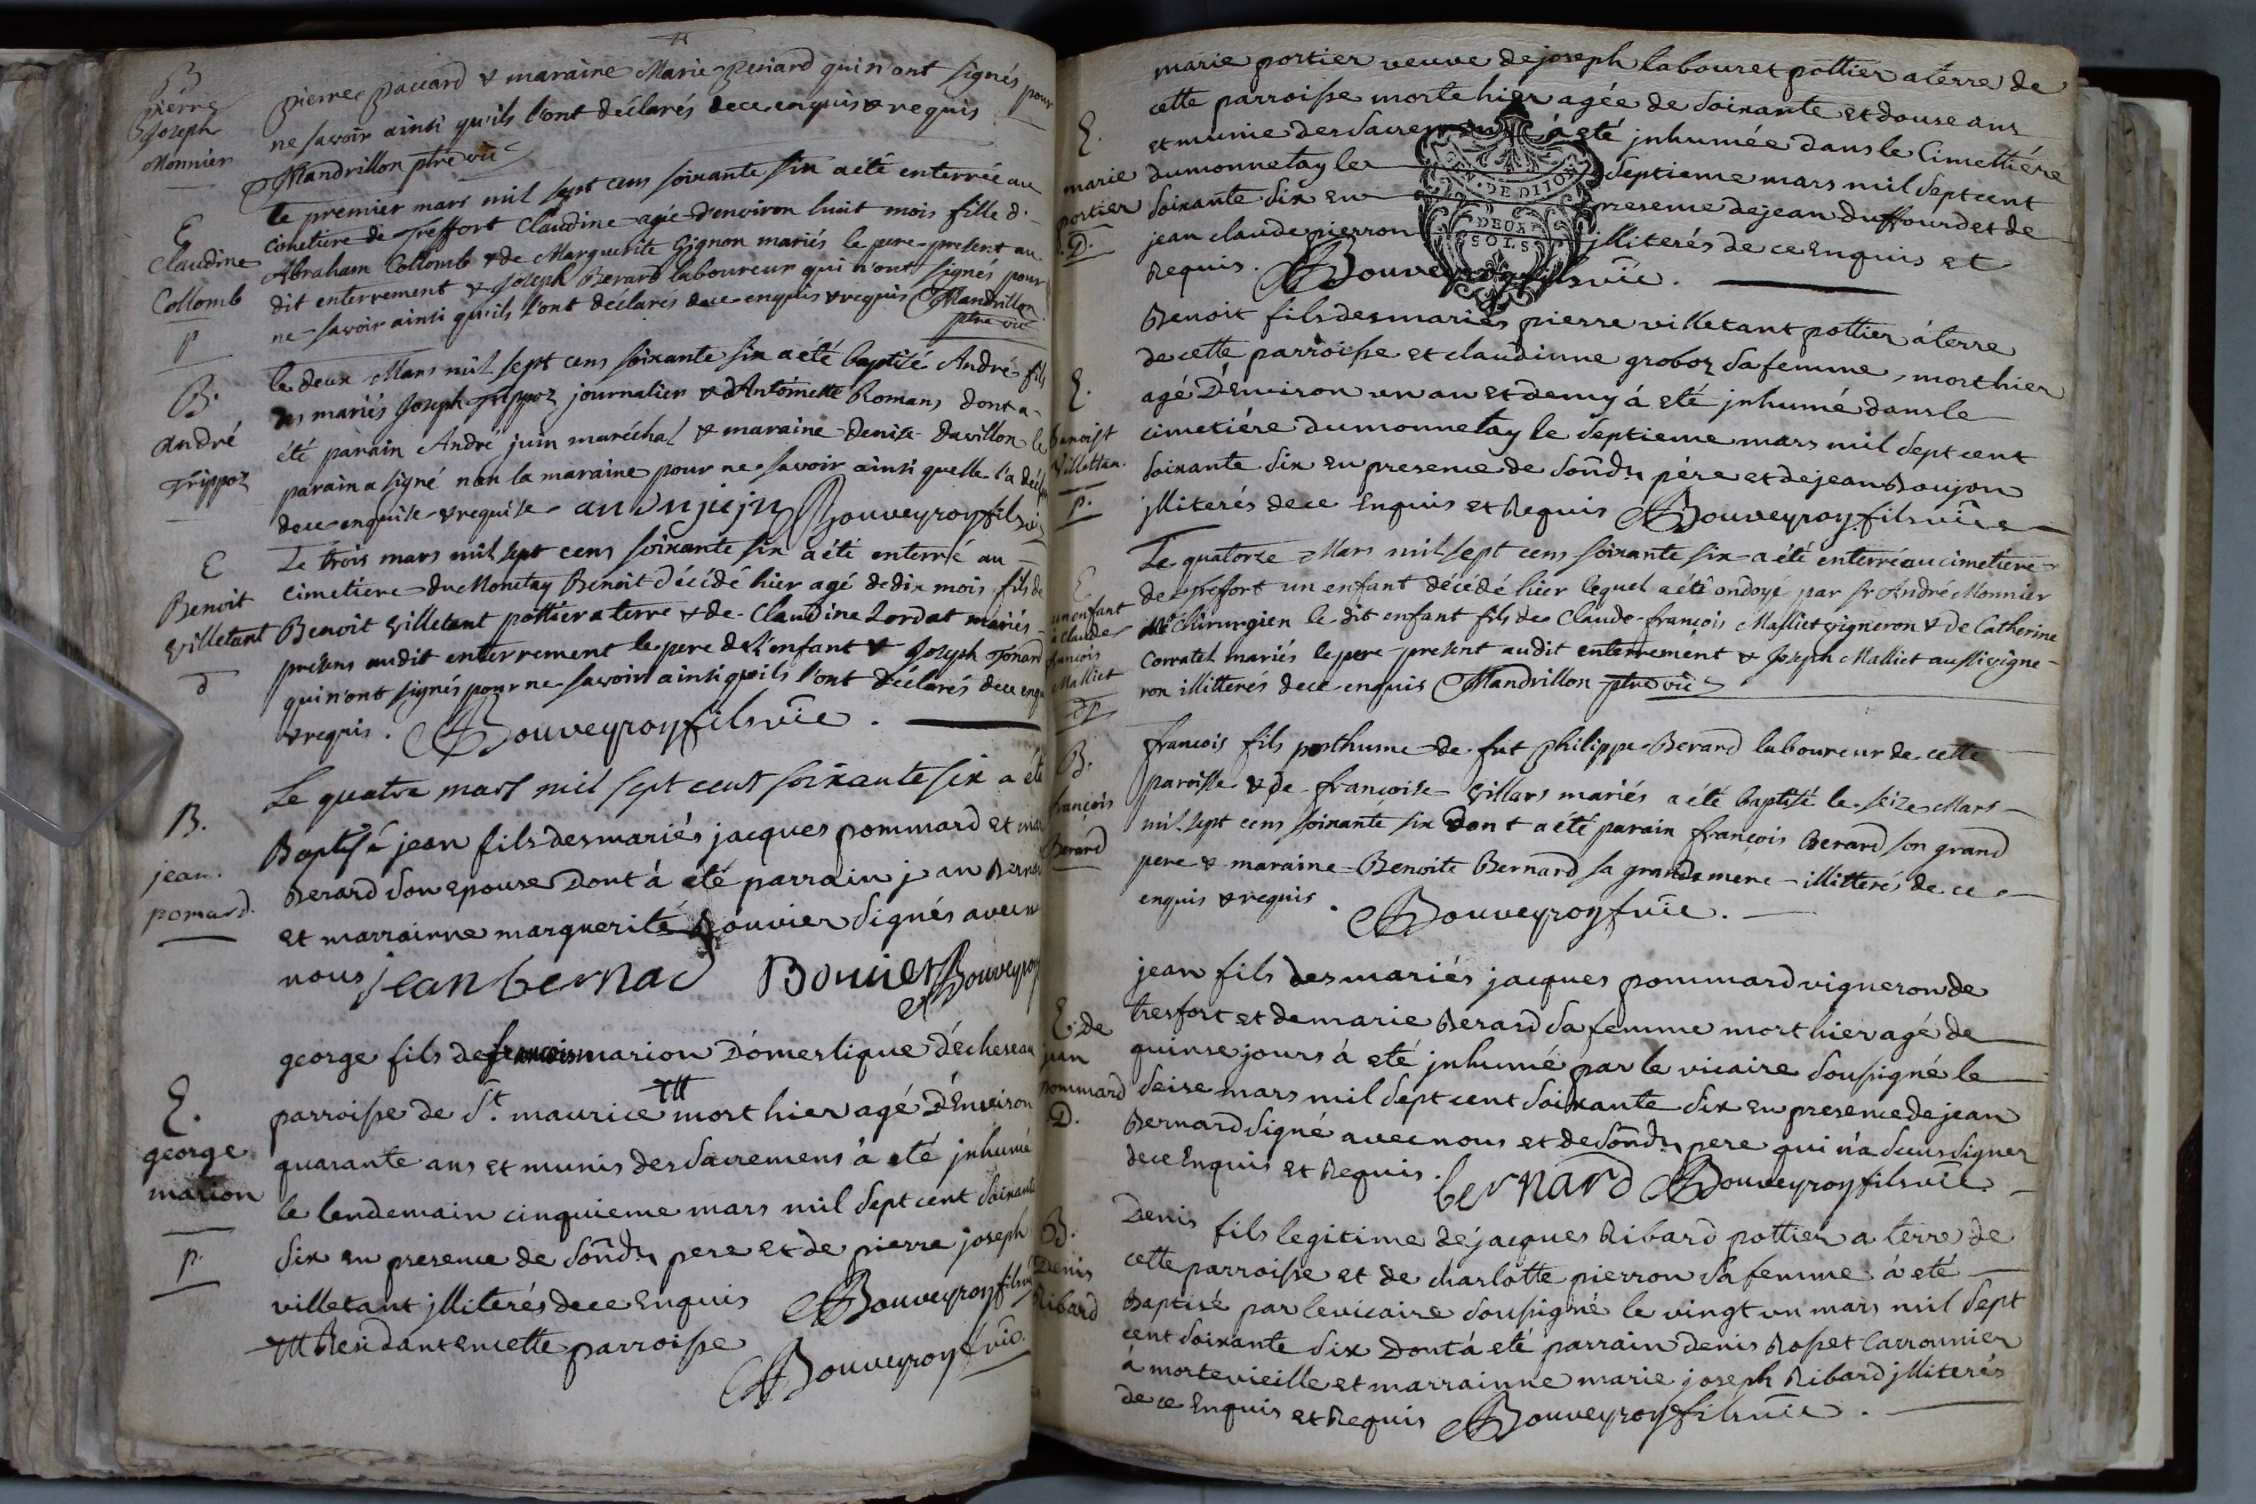 B
pierre
Joseph
Monnier
pierre paccard & maraine Marie Periard qui n'ont signés pour
ne savoir ainsi qu'ils l'ont déclarés de ce enquis & requis
Mandrillon ptre vic
E
Claudine
Collomb
p
le premier mars mil sept cens soixante six a été enterrée au
cimetiere de Treffort Claudine agée d'environ huit mois fille d'
Abraham Collomb & de Marguerite Gignon mariés le pere present au
dit enterrement & Joseph Berard laboureur qui n'ont signés pour
ne savoir ainsi qu'ils l'ont déclarés de ce enquis & requis Mandrillon
ptre vic
B.
André
Trippoz
le deux Mars mil sept cens soixante six a été baptisé André fils
des mariés Joseph Trippoz journalier & d'Antoinette Romans dont a
été parain André juin maréchal & maraine Denise Davillon le
parain a signé non la maraine pour ne savoir ainsi quelle l'a
de ce enquise & requise Bouveyron fils
E
Benoit
Villetant
d
Le trois mars mil sept cens soixante six a été enterré au
cimetiere du Monetay Benoit décédé hier agé de dix mois fils de
Benoit Villetant pottier a terre & de Claudine Lordat mariés
presens audit enterrement le pere de l'enfant & Joseph Tonard
qui n'ont signés pour ne savoir ainsi qu'ils l'ont déclarés de ce enquis
& requis. Bouveyron fils vic.
B.
jean.
pomard.
Le quatre mars mil sept cent soixante six a été
Baptisé jean fils des mariés jacques pommard et
Berard son epouse Dont á été parrain jean
et marrainne marguerite Bouvier signés avec
nous jean bernad Bouvier Bouveyron
E.
george
marion
p.
george fils de marion Domestique
parroisse de St. maurice mort hier agé D'Environ
quarante ans et munis des sacremens á eté jnhumé
le lendemain cinquieme mars mil sept cent soixante
six en presence de sond. pere et de pierre joseph
villetant jlliterés de ce Enquis Bouveyron fils
Residant en cette parroisse
Bouveyron f vic.
E.
marie
portier
D.
marie portier veuve de joseph labouret pottier a terre de
cette parroisse morte hier agée de soixante et douse ans
et munie des sacremens á eté jnhumée dans le Cimettiére
du monnetay le septieme mars mil sept cent
soixante six en presence de jean duffourd et de
jean claude pierron jlliterés de ce Enquis et
Requis. Bouveyron fils vic.
GEN. DE DIJON
DEUX
SOLS
E.
Benoist
Villettan.
p.
Benoit fils des mariés pierre villetant pottier á terre
de cette parroisse et claudinne groboz sa femme, mort hier
agé D'Environ un an et demy á eté jnhumé dans le
cimetiére du monnetay le septieme mars mil sept cent
soixante six en presence de sond. pére et de jean Boujon
jlliterés de ce Enquis et Requis Bouveyron fils vic
E
un enfant
a claude
françois
Malliet
Le quatorze Mars mil sept cens soixante six a été enterré au cimetiere
de trefort un enfant décédé hier lequel a été ondoyé par sr André Monnier
Me Chirurgien le dit enfant fils de Claude françois Malliet vigneron & de Catherine
Corratel mariés le pere present audit enterrement & Joseph Malliet aussi vigne-
ron illitterés de ce enquis Mandrillon ptre vic
B.
françois
Berard
françois fils posthume de fut Philippe Berard laboureur de cette
paroisse & de françoise Villars mariés a été baptisé le seize Mars
mil sept cens soixante six Dont a été parain françois Berard son grand
pere & maraine Benoite Bernard sa grande mere illitterés de ce
enquis & requis. Bouveyron f vic.
E. de
jean
pommard
D.
jean fils des mariés jacques pommard vigneron de
tresfort et de marie Berard sa femme mort hier agé de
quinse jours á eté jnhumé par le vicaire soussigné le
seise mars mil sept cent soixante six en presence de jean
Bernard signé avec nous et de sond. pere qui n'a sceu signer
de ce Enquis et Requis. bernard Bouveyron fils vic.
B.
Denis
Ribard
Denis fils legitime de jacques Ribard pottier a terre de
cette parroisse et de charlotte pierron sa femme á eté
Baptisé par le vicaire soussigné le vingt un mars mil sept
cent soixante six Dont á eté parrain denis Rosset Carronnier
á mortevieille et marrainne marie joseph Ribard jlliterés
de ce Enquis et Requis Bouveyron fils vic.